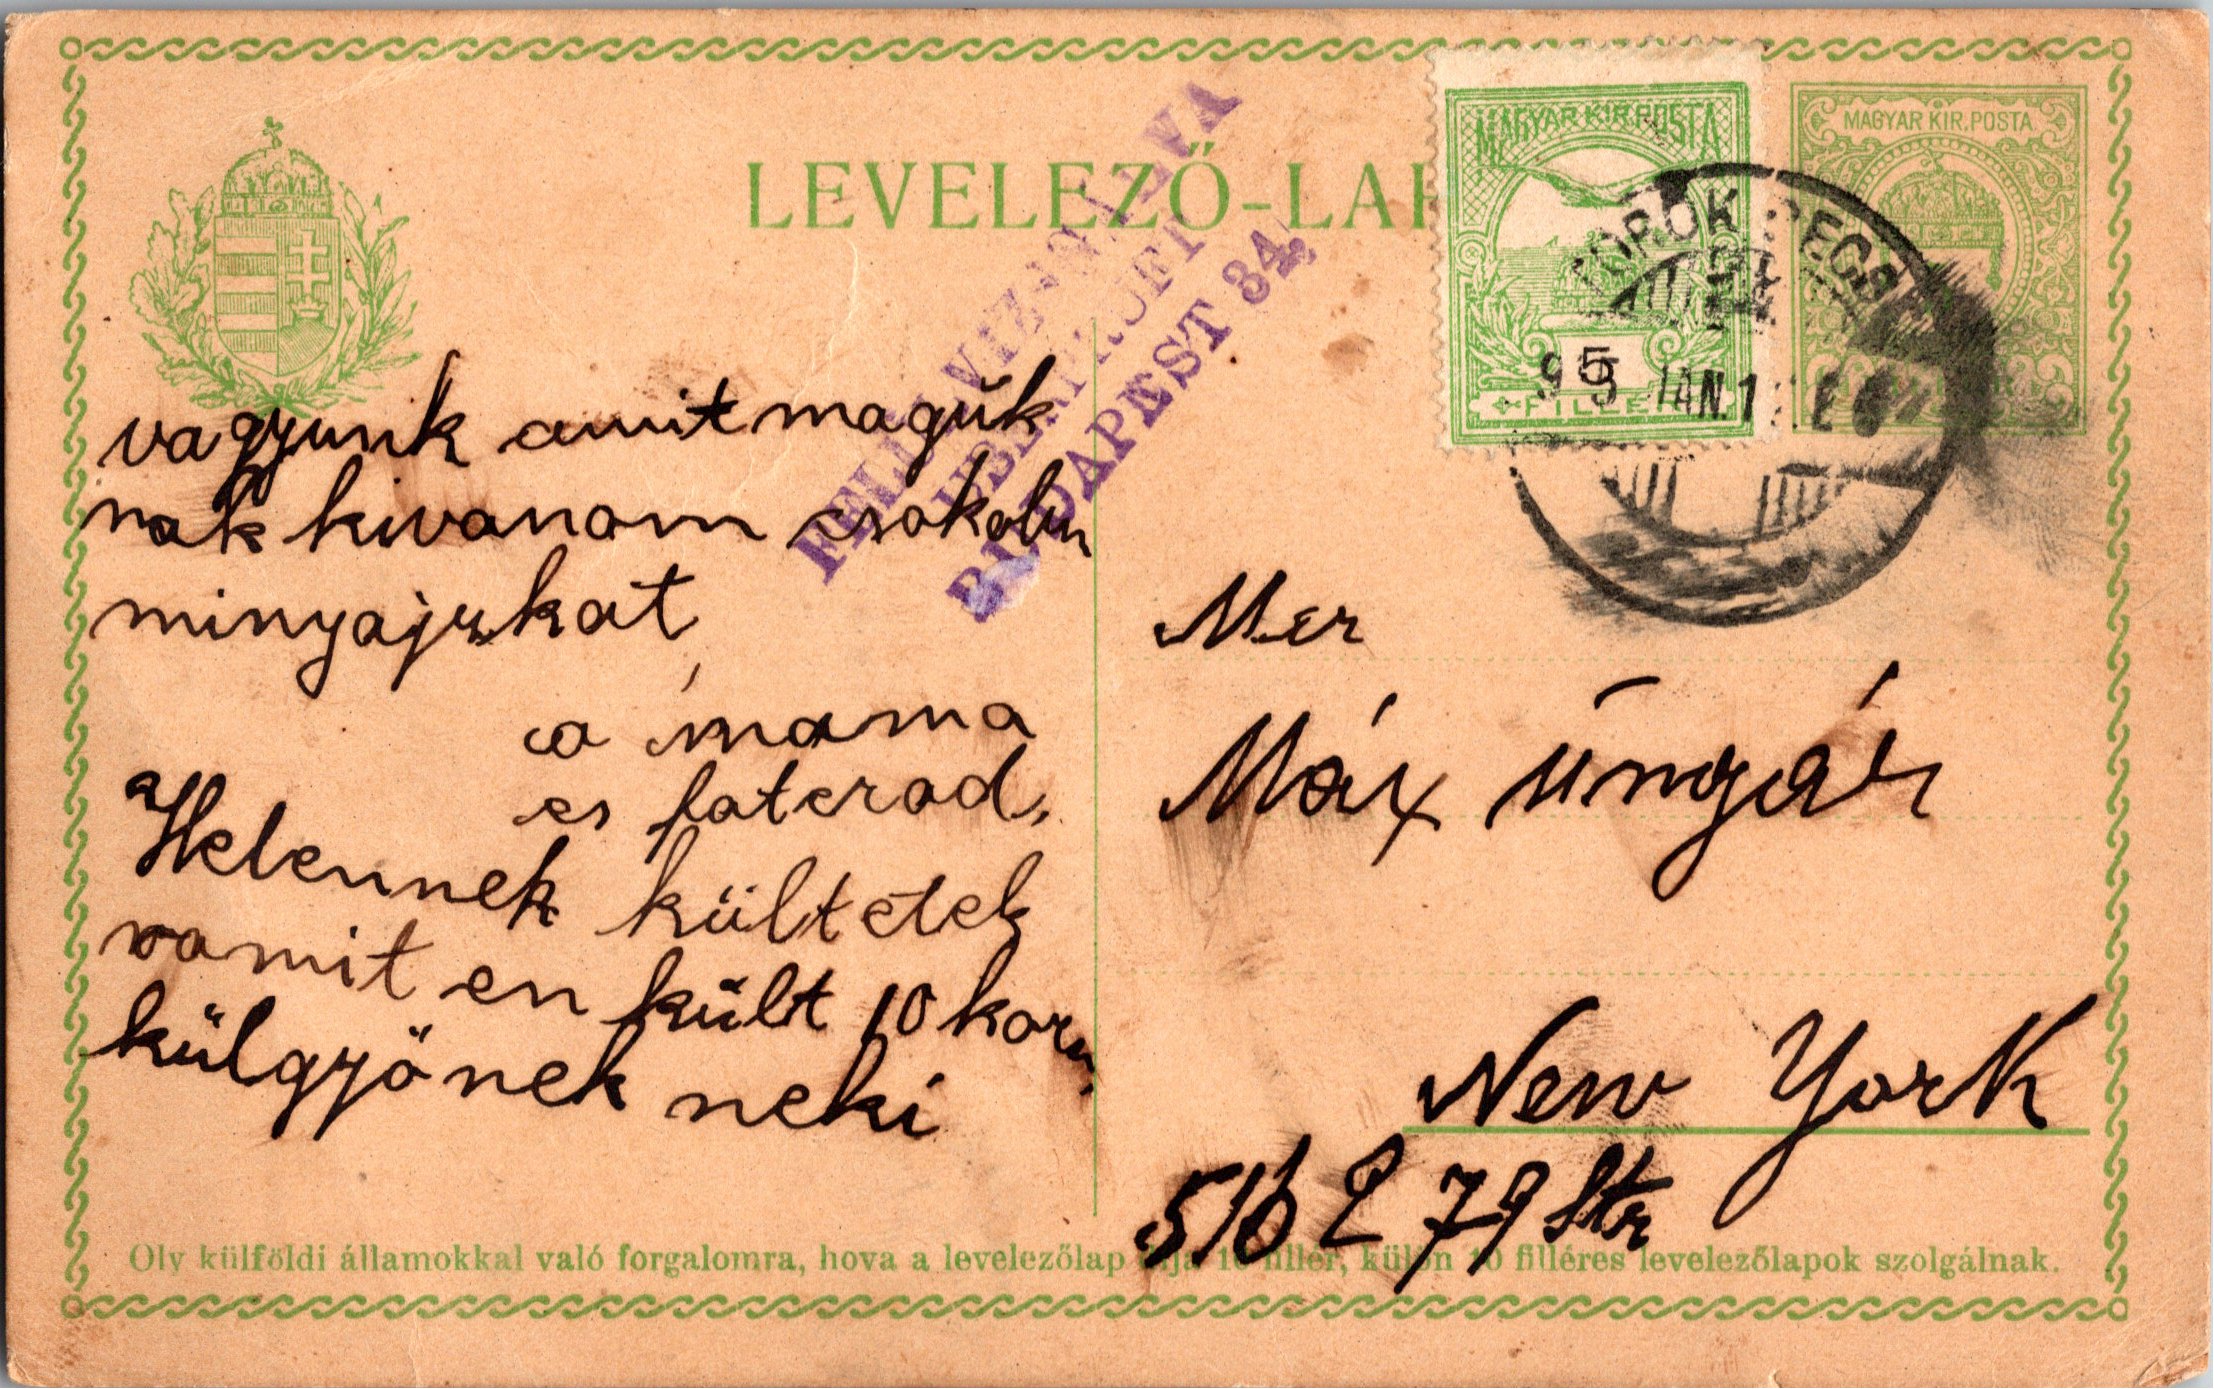 LEVELEZŐ-LA
MAGYAR KIR. POSTA
5
FILLE
MAGYAR KIR. POSTA
TÖRÖK BECS
JAN. 1
BUDAPEST 34.
vagyunk amit maguk
nak kivanom csokolun
minyajukat
a mama
es faterod,
Helennek kültetek
vamit en kült 10 koro
külgyönek neki
Mer
Máx Ungár
New York
516 E 79 Str
Oly külföldi államokkal való forgalomra, hova a levelezőlap díja 10 fillér, külön 10 filléres levelezőlapok szolgálnak.